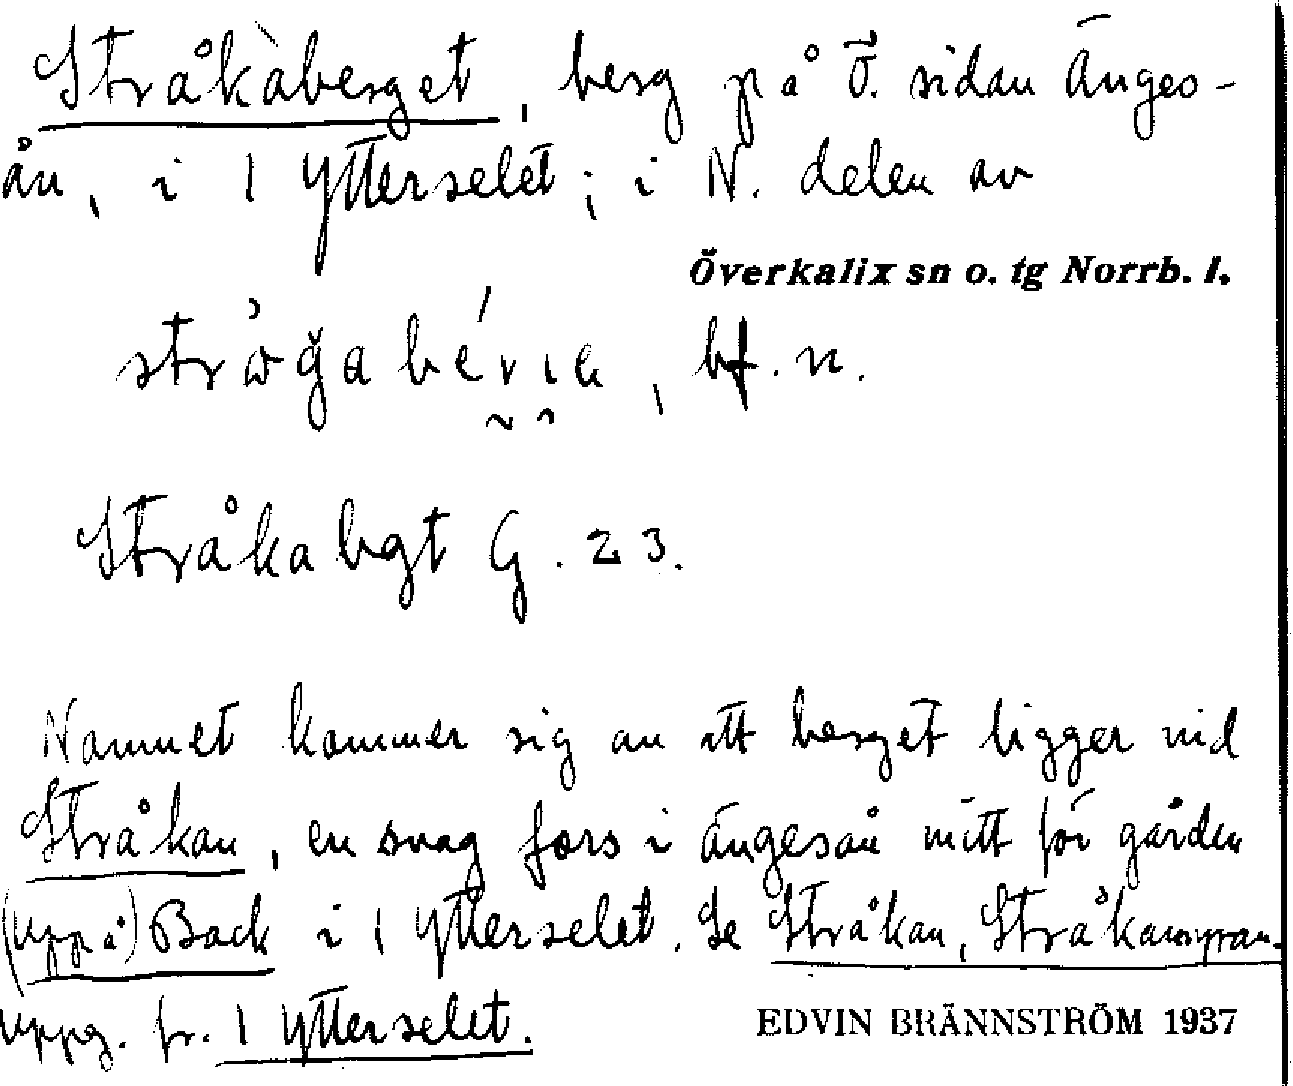 Stråkàberget, berg på Ö. sidan Änges-
ån, i 1 Ytterselet; i N. delen av
Överkalix sn o. tg Norrb. l.
bf. n.
Stråkabgt G. 23.
Namnet kommer sig av att berget ligger vid
Stråkan, en svag fors i Ängesån mitt för gården
(Uppå) Back i 1 Ytterselet. Se Stråkan, Stråkamyran.
Uppg. fr. 1 Ytterselet.
EDVIN BRÄNNSTRÖM 1937